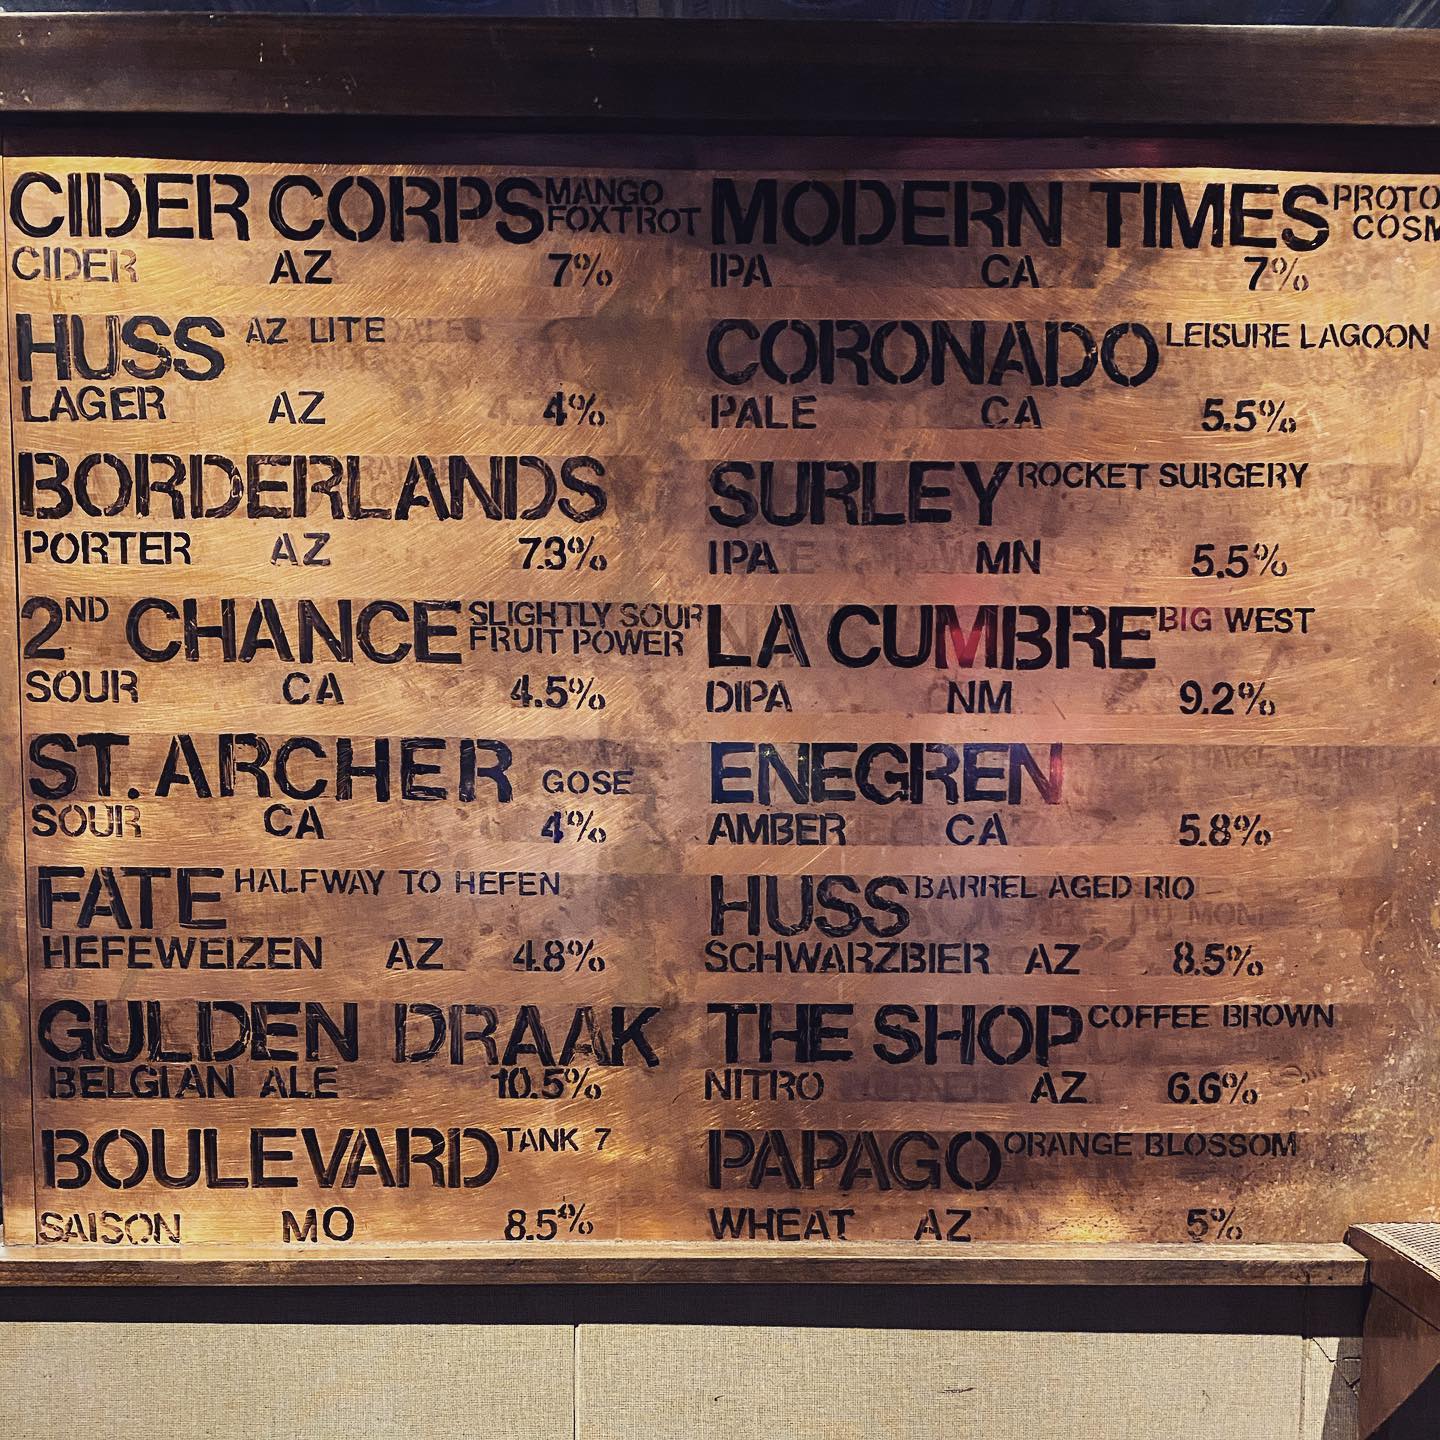 CIDER CORPS MANGO FOXTROT
CIDER AZ 7%
HUSS AZ LITE
LAGER AZ 4%
BORDERLANDS
PORTER AZ 7.3%
2ND CHANCE SLIGHTLY SOUR FRUIT POWER
SOUR CA 4.5%
ST. ARCHER GOSE
SOUR CA 4%
FATE HALFWAY TO HEFEN
HEFEWEIZEN AZ 4.8%
GULDEN DRAAK
BELGIAN ALE 10.5%
BOULEVARD TANK 7
SAISON MO 8.5%
MODERN TIMES PROTO COSM
IPA CA 7%
CORONADO LEISURE LAGOON
PALE CA 5.5%
SURLEY ROCKET SURGERY
IPA MN 5.5%
LA CUMBRE BIG WEST
DIPA NM 9.2%
ENEGREN
AMBER CA 5.8%
HUSS BARREL AGED RIO
SCHWARZBIER AZ 8.5%
THE SHOP COFFEE BROWN
NITRO AZ 6.6%
PAPAGO ORANGE BLOSSOM
WHEAT AZ 5%